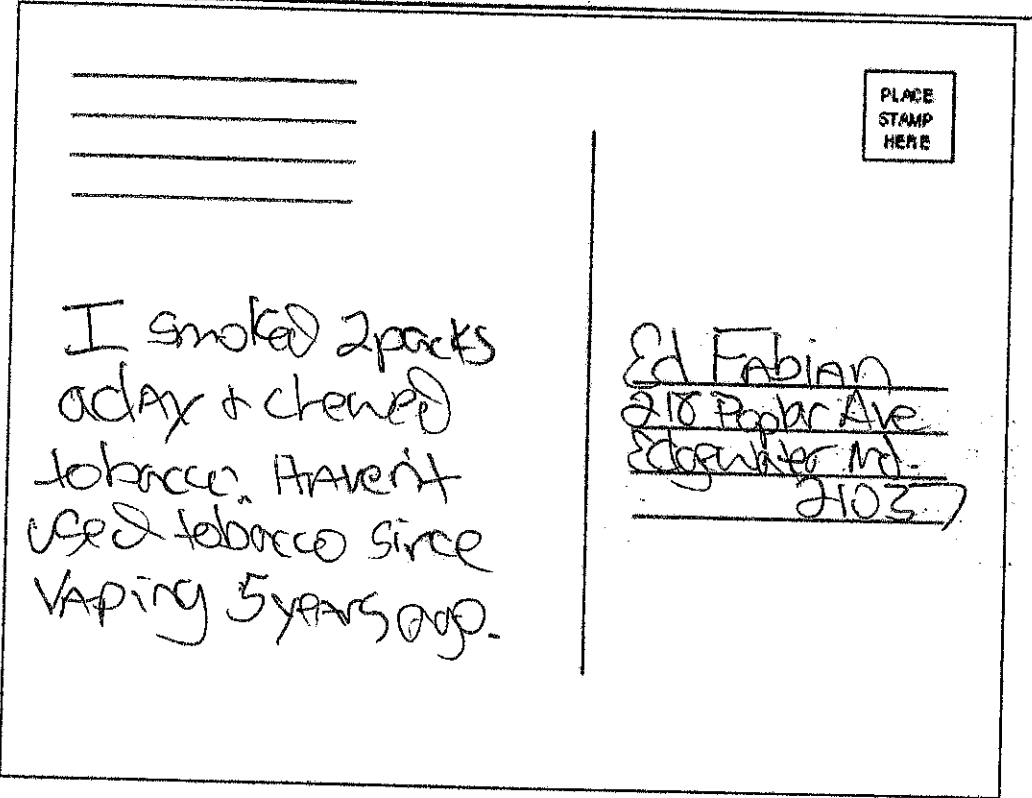 PLACE
STAMP
HERE
I smoked 2packs
a dAy + chewed
tobacco. HAven't
used tobacco since
VAping 5 yeArs ago.
Ed FAbiAn
218 Poplar Ave
Edgewater Md.
21037